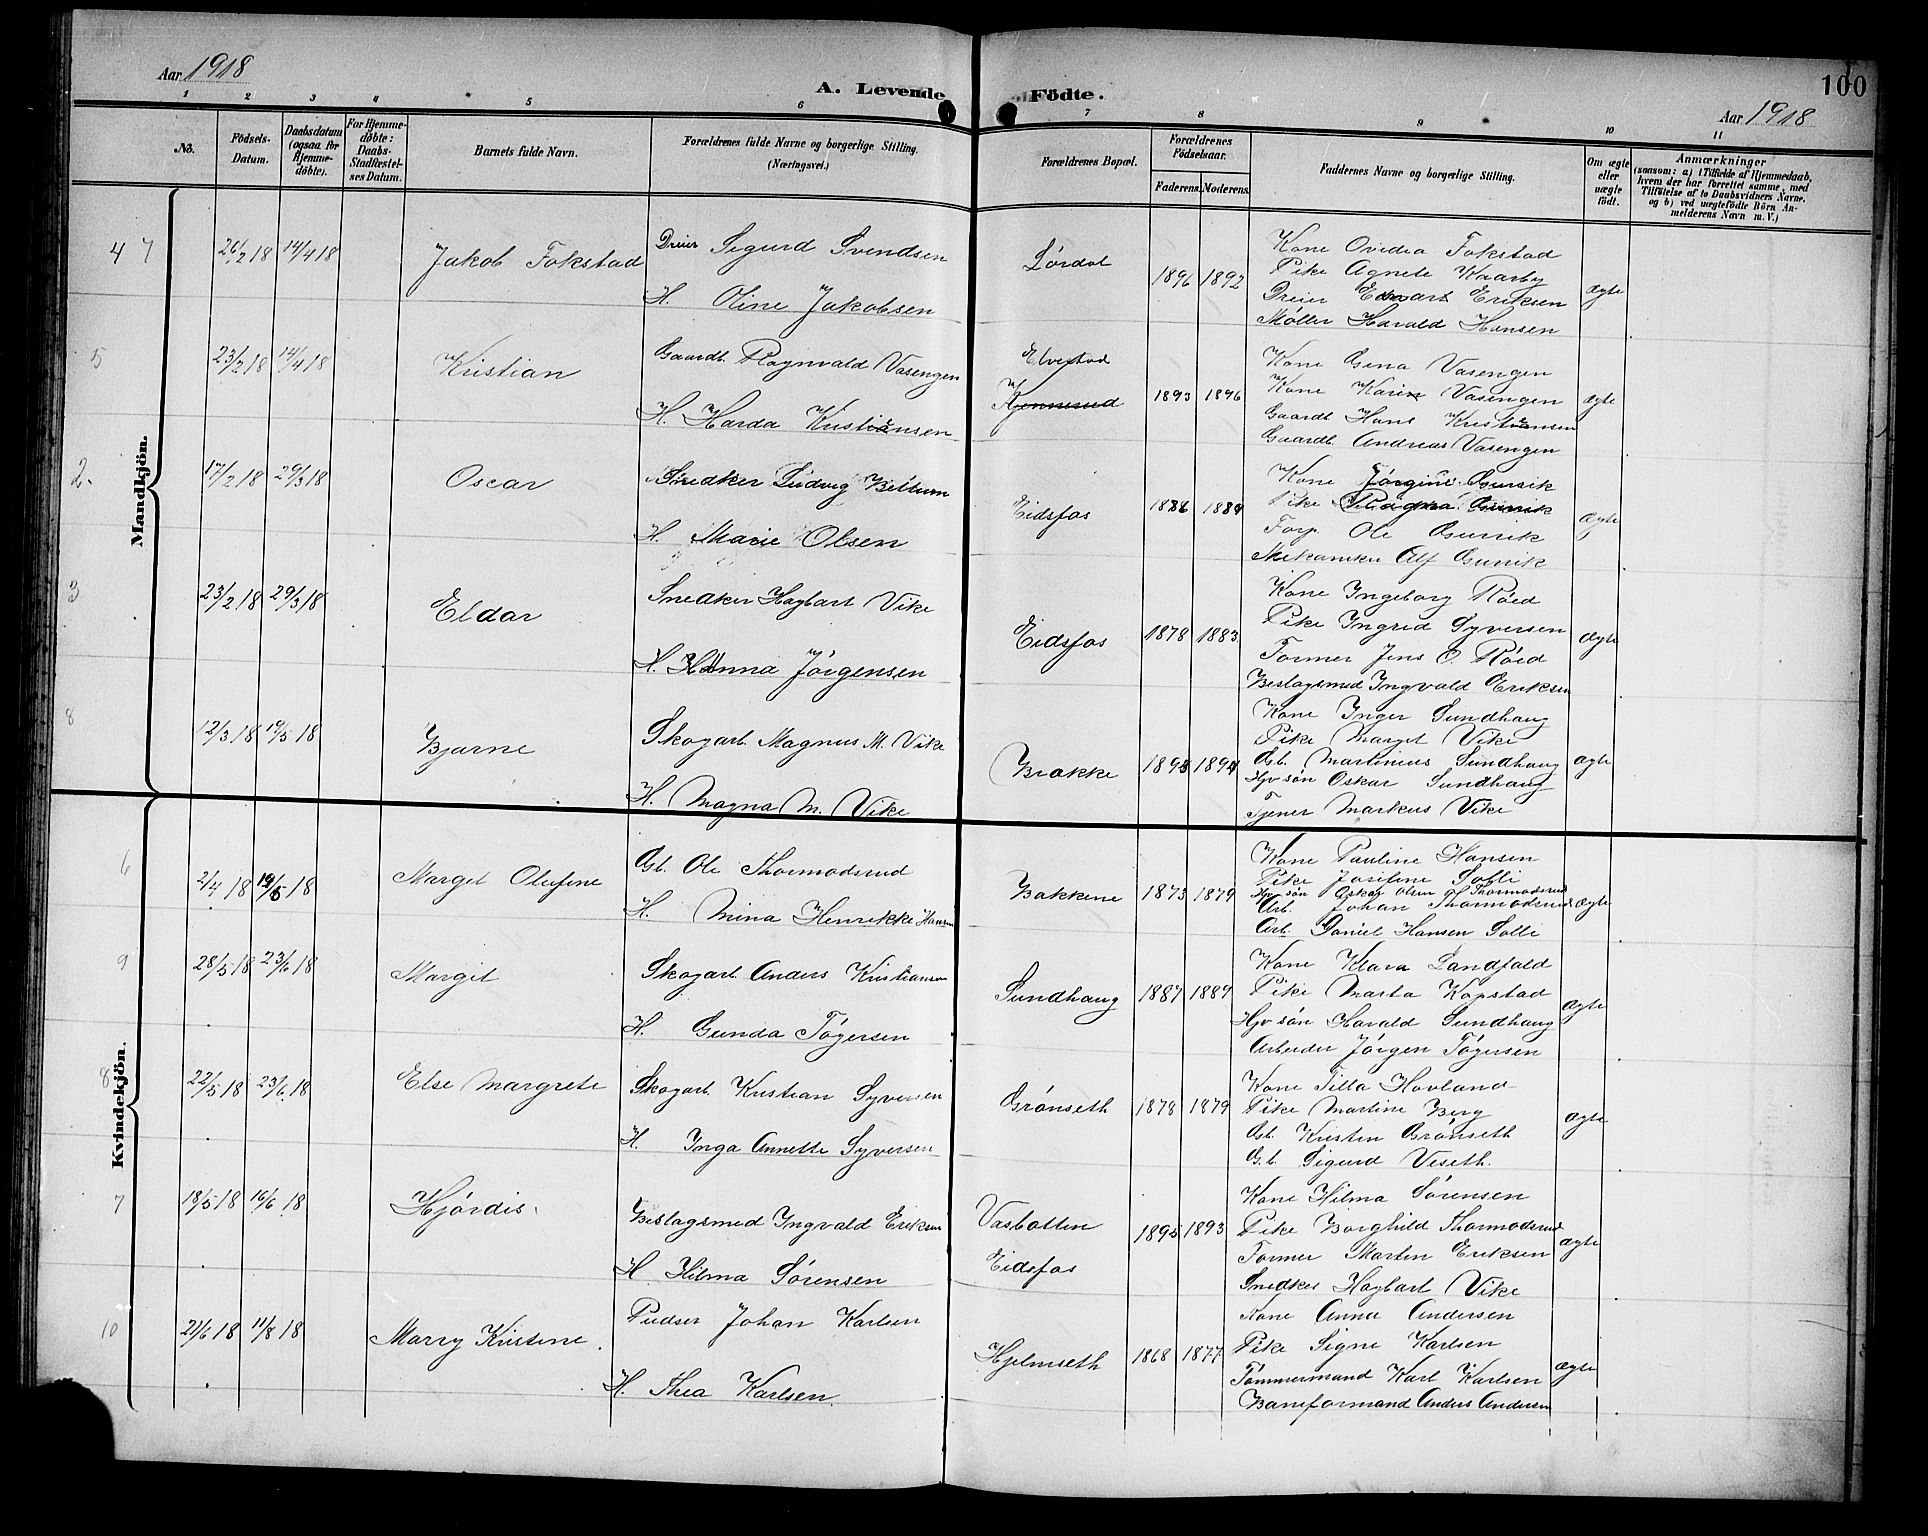 Aar 1918
A. Levende Födte.
100
Aar 1918
1 2 3 4 5 6 7 8 9 10 11
No.
Födsels-Datum.
Daabsdatum (ogsaa for Hjemme-döbte).
For Hjemme-döbte: Daabs-Stadfæstel-ses Datum.
Barnets fulde Navn.
Forældrenes fulde Navne og borgerlige Stilling.
(Næringsvei.)
Forældrenes Bopæl.
Forældrenes Födselsaar.
Faderens. Moderens.
Faddernes Navne og borgerlige Stilling.
Om ægte eller uægte födt.
Anmærkninger
(saasom: a) i Tilfælde af Hjemmedaab,
hvem der har forrettet samme, med
Tilføielse af to Daabsvidners Navne.
og b) ved uægtefödte Börn An-
melderens Navn m. V.)
Mandkjön.
4 7
26/2 18 14/4 18
Jakob Fokstad
Dreier Sigurd Svendsen
H. Oline Jakobsen
Lørdal
1896 1892
Kone Ovidea Fokstad
Pike Agnete Kaarby
Dreier Edvart Eriksen
Møller Harald Hansen
ægte
5
23/2 18 14/4 18
Kristian
Gaardb. Ragnvald Vasengen
H. Harda Kristiansen
Elvestad
Kjennerud
1893 1896
Kone Gina Vasengen
Kone Karin Vasengen
Gaardb. Hans Kristiansen
Gaardb. Andreas Vasengen
ægte
2.
17/2 18 29/3 18
Oscar
Snedker Ludvig Bettum
H. Marie Olsen
Eidsfos
1886 1884
Kone Jørgine Gunik
Pike Ragna Gunik
Forp. Ole Gunik
Mekaniker Alf Gunik
ægte
3
23/2 18 29/3 18
Eldar
Snedker Hagbart Vike
H. Hanna Jörgensen
Eidsfos
1878 1883
Kone Ingeborg Röed
Pike Ingrid Syversen
Former Jens O. Röed
Beslagsmed Ingvald Eriksen
ægte
8
12/3 18 19/5 18
Bjarne
Skogarb. Magnus M. Vike
H. Magna M. Vike
Brække
1893 1894
Kone Inger Sundhaug
Pike Margit Vike
Gb. Martinius Sundhaug
Hjv sön Oskar Sundhaug
Tjener Markus Vike
ægte
Kvindekjön.
6
2/4 18 19/5 18
Margit Olufine
Gb. Ole Thormodsrud
H. Mina Henrikke Hansen
Bakkene
1873 1879
Kone Pauline Hansen
Pike Josifine Solli
Hjv sön Oskar Olsen Thormodsrud
Arb. Johan Thormodsrud
Arb. Daniel Hansen Solli
ægte
9
28/5 18 23/6 18
Margit
Skogarb. Anders Kristiansen
H. Gunda Tögersen
Sundhaug
1887 1889
Kone Klara Landfald
Pike Marta Kopstad
Hjv sön Harald Sundhaug
Arbeider Jörgen Tögersen
ægte
8
22/5 18 23/6 18
Else Margrete
Skogarb. Kristian Syversen
H. Inga Annette Syversen
Grönseth
1878 1879
Kone Tilla Hovland
Pike Martine Berg
Gb. Kristen Grönseth
G.b. Sigurd Viseth.
ægte
7
18/5 18 16/6 18
Hjördis
Beslagsmed Ingvald Eriksen
H. Hilma Sörensen
Vasbotten
Eidsfos
1895 1893
Kone Hilma Sörensen
Pike Borghild Thormodsrud
Former Martin Eriksen
Snedker Hagbart Vike
ægte
10
21/6 18 11/8 18
Marry Kristine
Pudser Johan Karlsen
H. Thea Karlsen
Hjelmseth
1868 1877
Kone Anna Andersen
Pike Signe Karlsen
Tömmermand Karl Karlsen
Baneformand Anders Andersen
ægte